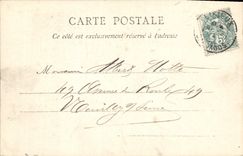 CARTE POSTALE
Ce côté est exclusivement réservé à l'adresse
Monsieur Albert
49 Avenue du Roule 49
Neuilly s/ Seine